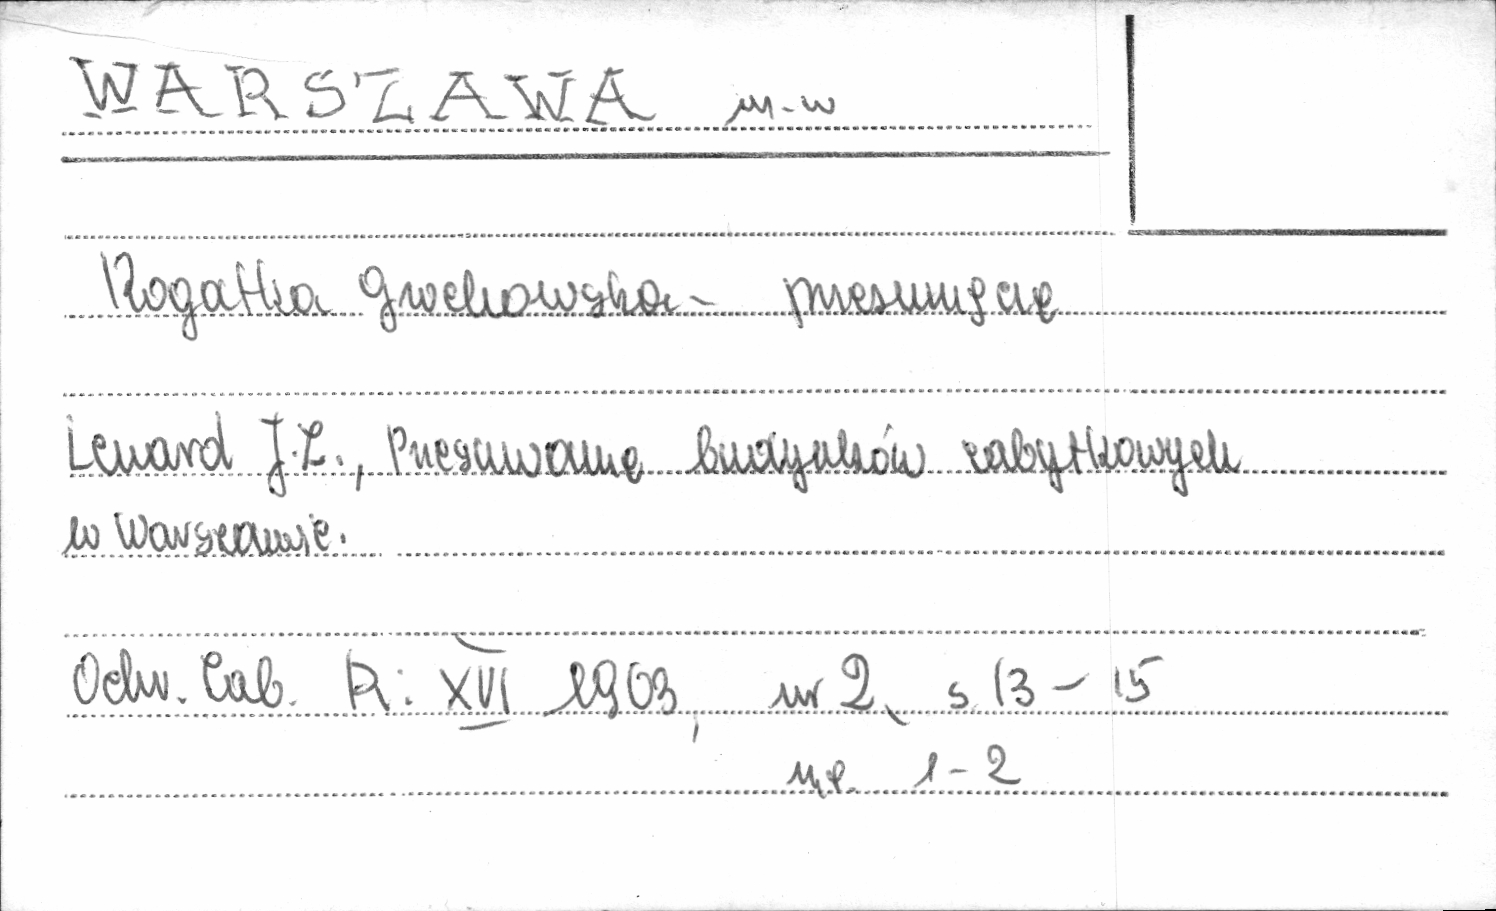 WARSZAWA m-w
Rogatka Grochowska - przesunięcie
Lenard J.Z., Przesuwanie budynków zabytkowych
w Warszawie.
Ochr. Zab. R: XVI 1963, nr 2, s 13 - 15
1-2